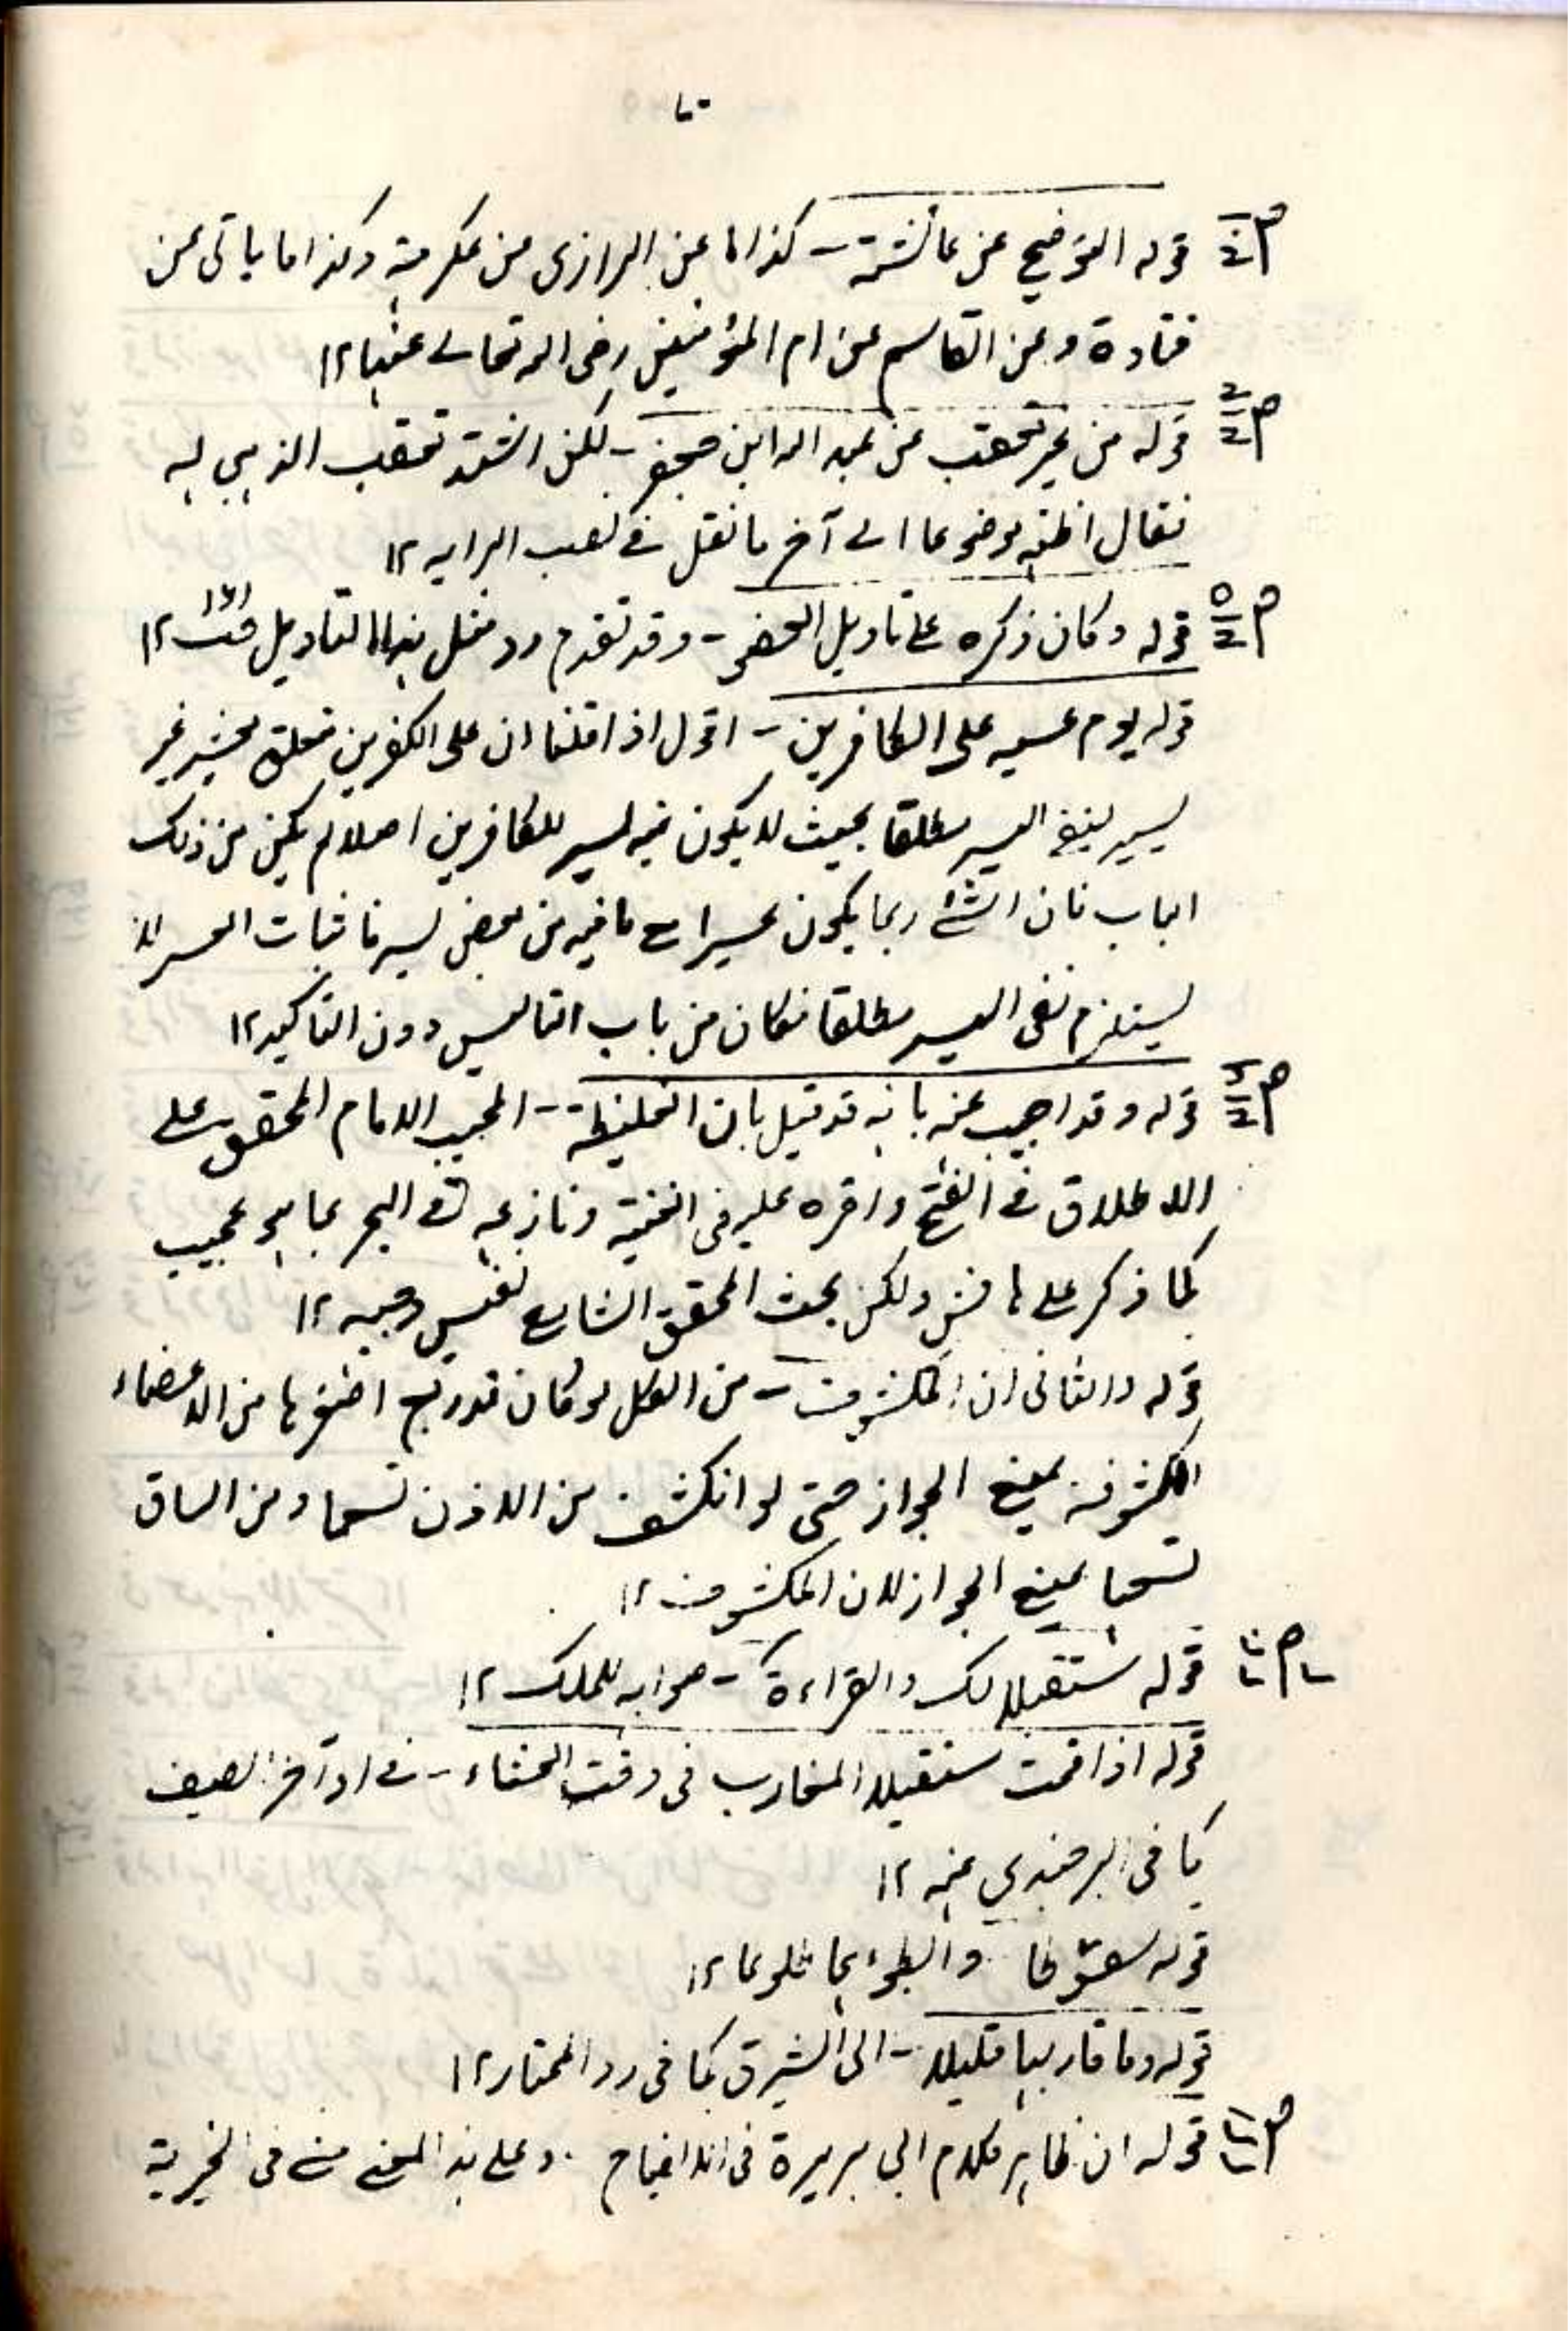 قوله التوضيح عن عائشة - كذا ما عن الرازى من عكرمة وكذا ما ياتى عن
قتادة وعن القاسم عن ام المؤمنين رضى الله تعالى عنها ١٢
قوله من غير تعقب عن عبد الله ابن جعفر - لكن اشتد تعقب الذهبي له
فقال اظنه موضوعا الى آخر ما نقل فى نصب الرايه ١٢
قوله وكان ذكره على تاويل العضو - وقد تقدم رد مثل هذا التاويل ١٢
قوله يوم عسير على الكافرين - اقول اذا قلنا ان على الكفرين متعلق غير
يسير لنفى اليسر مطلقا بحيث لا يكون فيه يسر للكافرين اصلا لم يكن من ذلك
الباب فان الشئ ربما يكون عسيرا مع ما فيه من بعض يسر فاثبات العسر لا
يستلزم نفى اليسر مطلقا فكان من باب التاسيس دون التاكيد ١٢
قوله وقد اجيب عنه بانه قد قيل بان الغليظة - المجيب الامام المحقق على
الاطلاق فى الفتح واقره عليه فى الغنية ونازعه فى البحر بما هو عجيب
كما ذكر على هامش ولكن بحث المحقق الشارع نفيس وجيه ١٢
قوله والثانى ان المكشوف - من الكل لو كان قدر ربع اصغرها من الاعضاء
المكشوفة يمنع الجواز حتى لو انكشف من الاذن تسعها ومن الساق
تسعها يمنع الجواز لان المكشوف ١٢
قوله مستقبلا لك والقراءة - صوابه للملك ١٢
قوله اذا قمت مستقبلا المغارب فى وقت العشاء - فى اواخر الصيف
كما فى البرجندي عنه ١٢
قوله سقوطا والطوء بها طلوعا ١٢
قوله وما قاربها قليلا - الى الشرق كما فى رد المحتار ١٢
قوله ان ظاهر كلام ابى هريرة فى الايضاح وعلى هذا المعنى مشى فى الخيرية